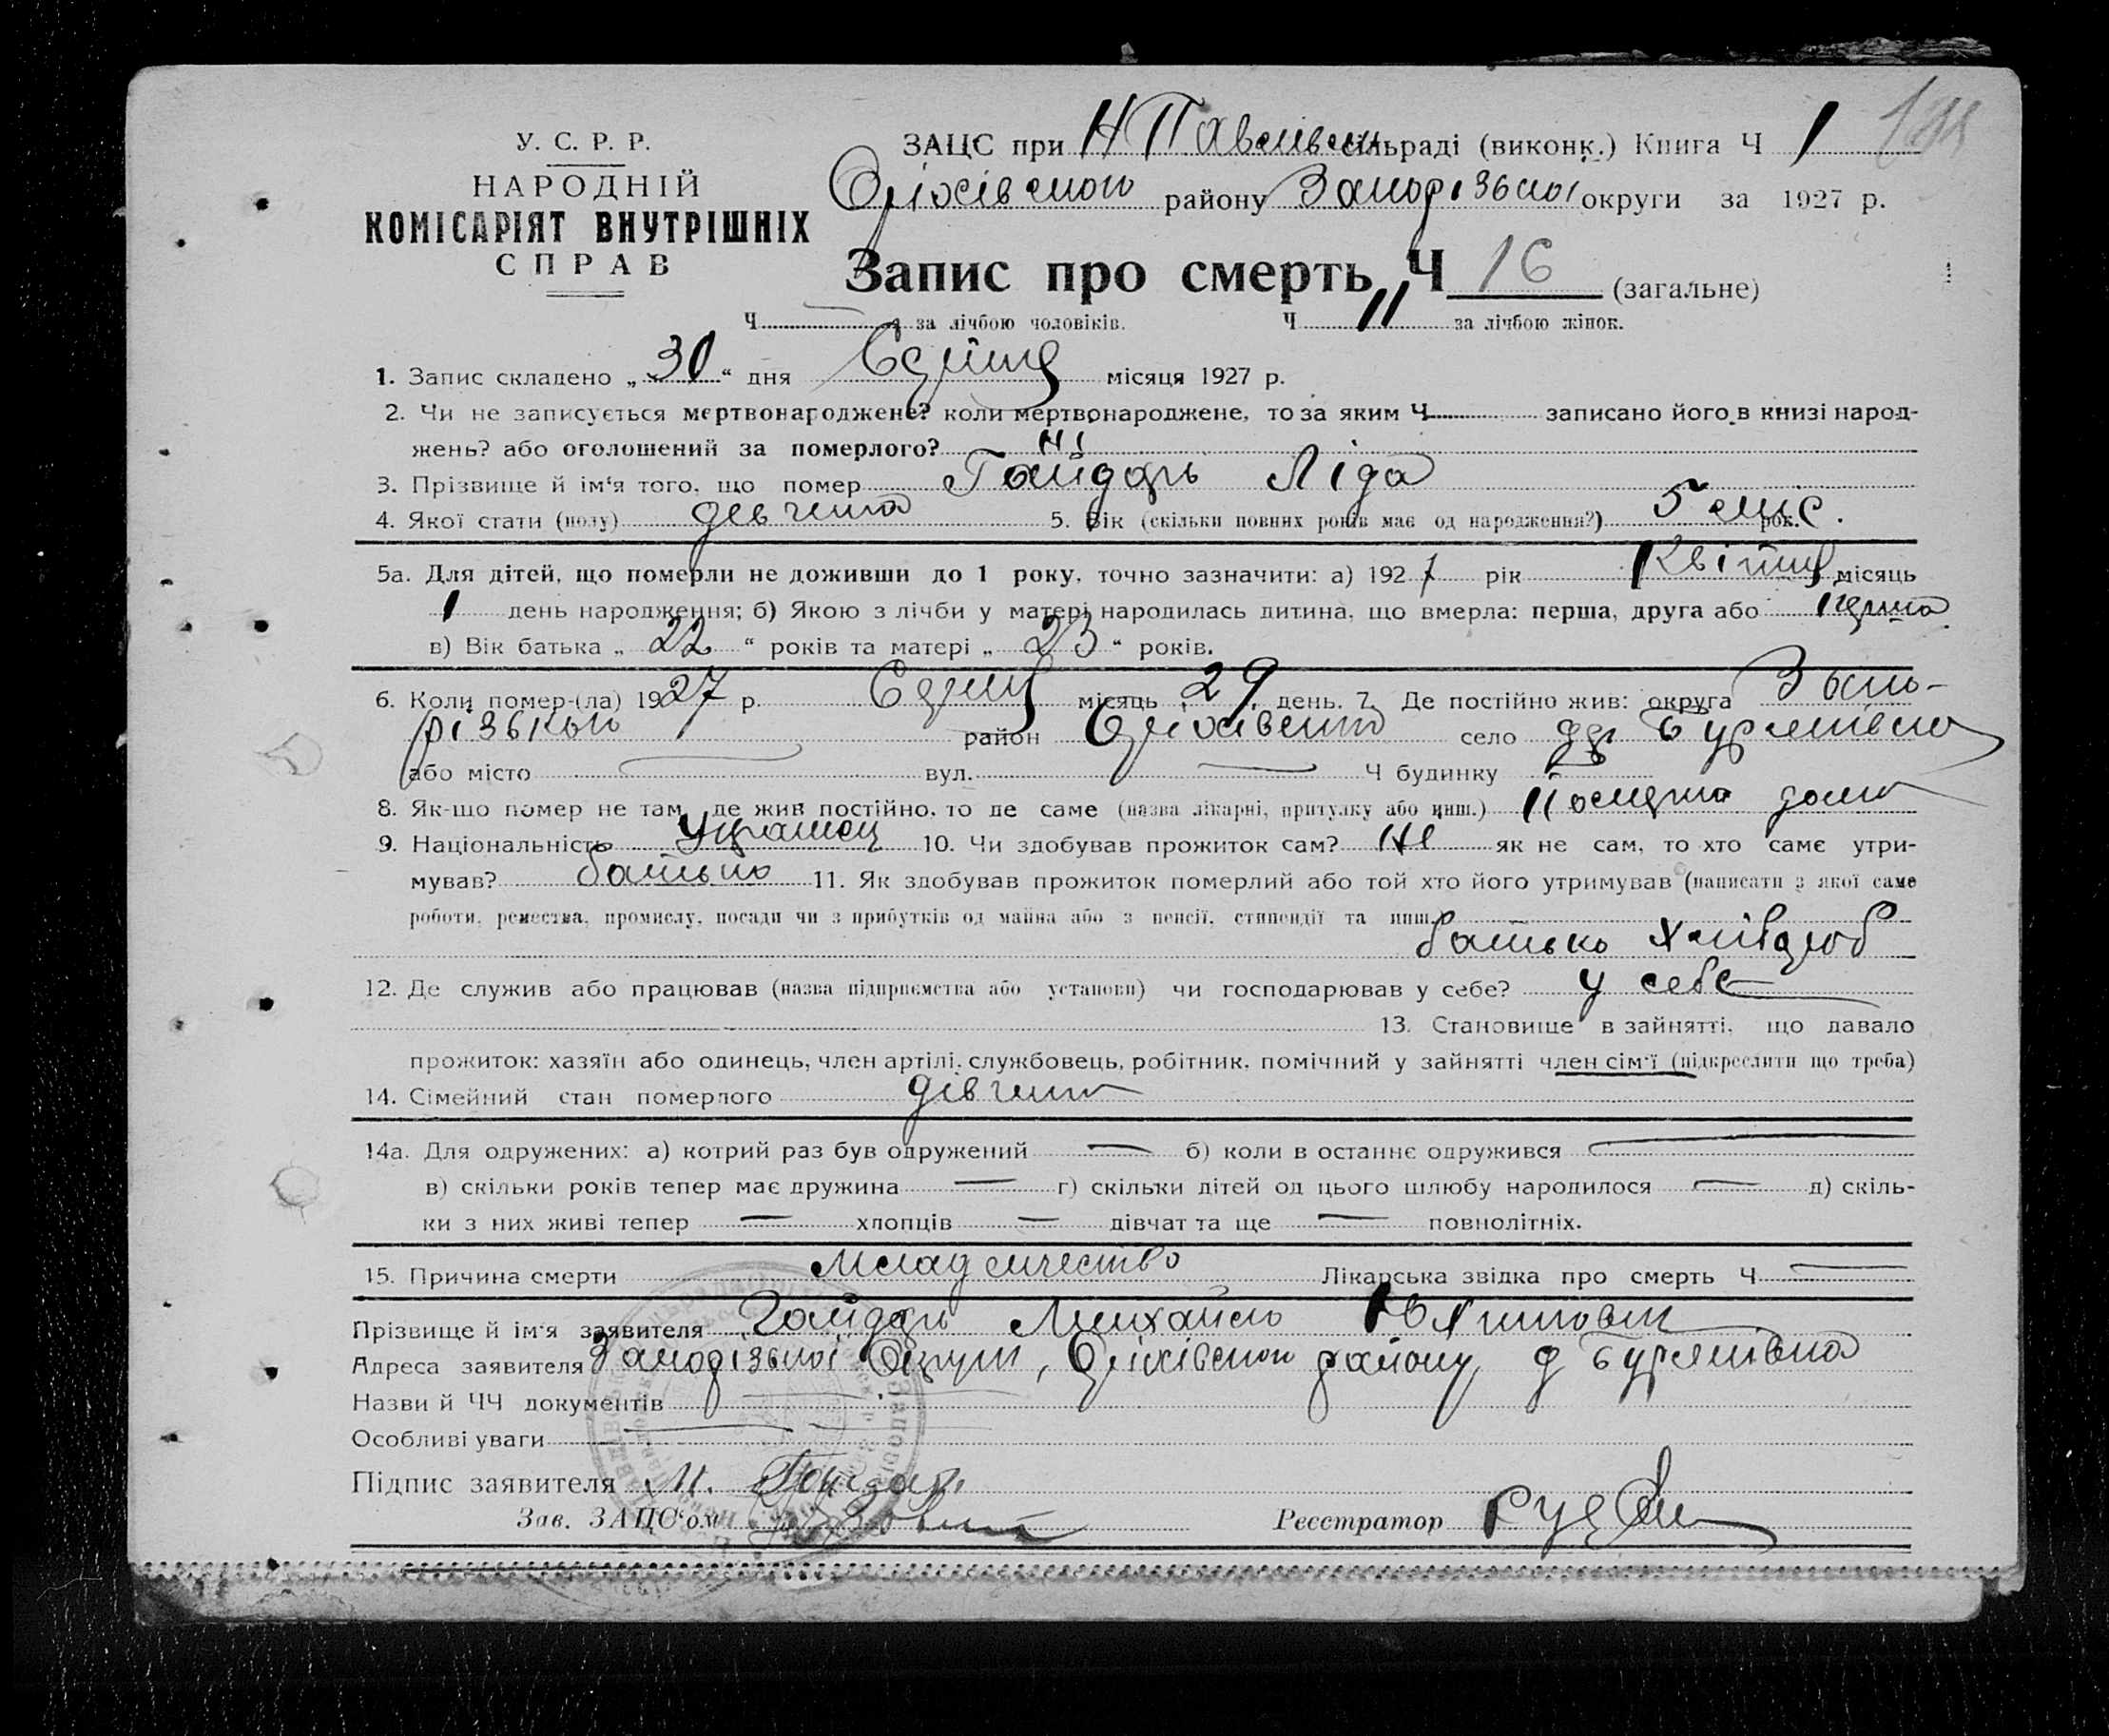 У. С. Р. Р.
НАРОДНІЙ
КОМІСАРІЯТ ВНУТРІШНІХ
СПРАВ
ЗАЦС при Н Павлівськ сільраді (виконк.) Книга Ч 1
Оріхівського району Запорізької округи за 1927 р.
Запис про смерть Ч 16 (загальне)
Ч за лічбою чоловіків. Ч 11 за лічбою жінок.
1. Запис складено „30“ дня Серпня місяця 1927 р.
2. Чи не записується мертвонароджене? коли мертвонароджене, то за яким Ч записано його в книзі народ-
жень? або оголошений за померлого? Ні
3. Прізвище й ім'я того, що помер Гайдарь Ліда
4. Якої стати (полу) девчина 5. Вік (скільки повних років має од народження?) 5 міс. рок.
5а. Для дітей, що померли не доживши до 1 року, точно зазначити: а) 1927 рік Квітня місяць
1 день народження; б) Якою з лічби у матері народилась дитина, що вмерла: перша, друга або перша
в) Вік батька „22“ років та матері „23“ років.
6. Коли помер-(ла) 1927 р. Серпня місяць 29 день. 7. Де постійно жив: округа Запо-
різька район Оріхівський село дер Бурлківка
або місто вул. Ч будинку
8. Як-що помер не там, де жив постійно, то де саме (назва лікарні, притулку або инш.) Померла дома
9. Національність Українец 10. Чи здобував прожиток сам? Не як не сам, то хто саме утри-
мував? батько 11. Як здобував прожиток померлий або той хто його утримував (написати з якої саме
роботи, ремества, промислу, посади чи з прибутків од майна або з пенсії, стипендії та инш.)
батько хлібороб
12. Де служив або працював (назва підприємства або установи) чи господарював у себе? у себе
13. Становище в зайнятті, що давало
прожиток: хазяїн або одинець, член артілі, службовець, робітник, помічний у зайнятті член сім'ї (підкреслити що треба)
14. Сімейний стан померлого дівчина
14а. Для одружених: а) котрий раз був одружений б) коли в останнє одружився
в) скільки років тепер має дружина г) скільки дітей од цього шлюбу народилося д) скіль-
ки з них живі тепер хлопців дівчат та ще повнолітніх.
15. Причина смерти Младенчество Лікарська звідка про смерть Ч
Прізвище й ім'я заявителя Гайдарь Михайло
Адреса заявителя Запорізької Округи, Оріхівського району д
Назви й ЧЧ документів
Особливі уваги
Підпис заявителя М. Гайдарь
Зав. ЗАЦС'ом Реєстратор